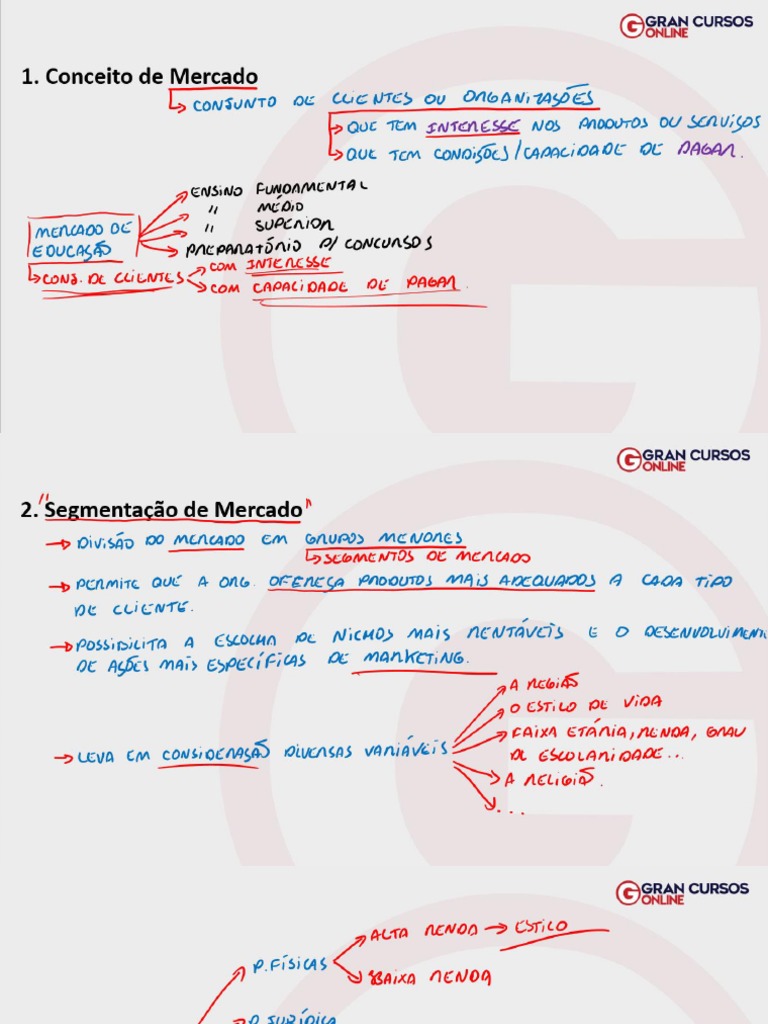 GRAN CURSOS
ONLINE
1. Conceito de Mercado
↳ CONJUNTO DE CLIENTES OU ORGANIZAÇÕES
→ QUE TEM INTERESSE NOS PRODUTOS OU SERVIÇOS
→ QUE TEM CONDIÇÕES/CAPACIDADE DE PAGAR.
MERCADO DE
EDUCAÇÃO
ENSINO FUNDAMENTAL
" MÉDIO
" SUPERIOR
PREPARATÓRIO P/ CONCURSOS
↳ CONJ. DE CLIENTES
COM INTERESSE
COM CAPACIDADE DE PAGAR.
GRAN CURSOS
ONLINE
2. "Segmentação de Mercado"
→ DIVISÃO DO MERCADO EM GRUPOS MENORES
↳ SEGMENTOS DE MERCADO
→ PERMITE QUE A ORG. OFEREÇA PRODUTOS MAIS ADEQUADOS A CADA TIPO
DE CLIENTE.
→ POSSIBILITA A ESCOLHA DE NICHOS MAIS RENTÁVEIS E O DESENVOLVIMENT
DE AÇÕES MAIS ESPECÍFICAS DE MARKETING.
→ LEVA EM CONSIDERAÇÃO DIVERSAS VARIÁVEIS
A REGIÃO
O ESTILO DE VIDA
FAIXA ETÁRIA, RENDA, GRAU
DE ESCOLARIDADE...
A RELIGIÃO.
...
GRAN CURSOS
ONLINE
P. FÍSICAS
ALTA RENDA → ESTILO
BAIXA RENDA
P. JURÍDICA